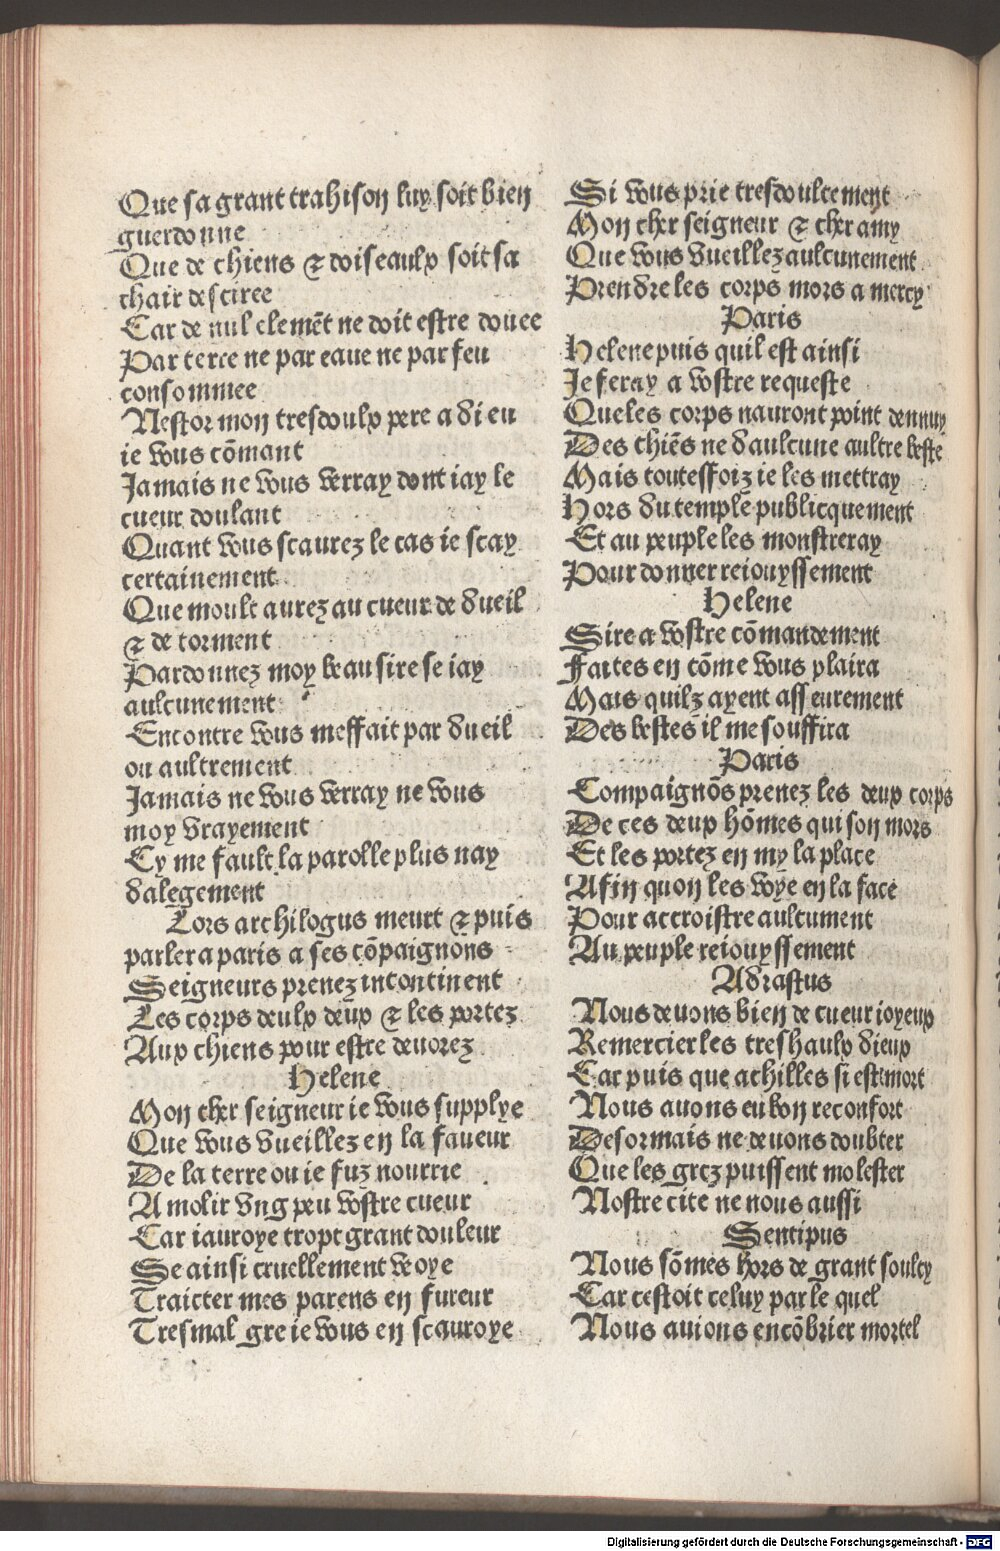 Que sa grant trahison luy soit bien
guerdonne
Que de chiens & doiseaulx soit sa
chair desciree
Car de nul elemēt ne doit estre douee
Par terre ne par eaue ne par feu
consommee
Nestor mon tresdoulx pere a dieu
ie vous cōmant
Jamais ne vous verray dont iay le
cueur doulant
Quant vous scaurez le cas ie scay
certainement
Que moult aurez au cueur de dueil
& de torment
Pardonnez moy beau sire se iay
aulcunement
Encontre vous meffait par dueil
ou aultrement
Jamais ne vous verray ne vous
moy vrayement
Cy me fault la parolle plus nay
dalegement
Lors archilogus meurt & puis
parlera paris a ses cōpaignons
Seigneurs prenez incontinent
Les corps deulx deux & les portez
Aux chiens pour estre deuorez
Helene
Mon cher seigneur ie vous supplye
Que vous vueillez en la faueur
De la terre ou ie fuz nourrie
Amolir vng peu vostre cueur
Car iauroye tropt grant douleur
Se ainsi cruellement veoye
Traicter mes parens en fureur
Tresmal gre ie vous en scauroye
Si vous prie tresdoulcement
Mon cher seigneur & cher amy
Que vous vueillez aulcunement
Prendre les corps mors a mercy
Paris
Helene puis quil est ainsi
Je feray a vostre requeste
Que les corps nauront point dennuy
Des chiēs ne daulcune aultre beste
Mais touteffoiz ie les mettray
Hors du temple publicquement
Et au peuple les monstreray
Pour donner reiouyssement
Helene
Sire a vostre cōmandement
Faites en cōme vous plaira
Mais quilz ayent asseurement
Des bestes il me souffira
Paris
Compaignōs prenez les deux corps
De ces deux hōmes qui son mors
Et les portez en my la place
Afin quon les voye en la face
Pour accroistre aulcument
Au peuple reiouyssement
Adrastus
Nous deuons bien de cueur ioyeux
Remercier les treshaulx dieux
Car puis que achilles si est mort
Nous auons eu bon reconfort
Desormais ne deuons doubter
Que les grez puissent molester
Nostre cite ne nous aussi
Sentipus
Nous sōmes hors de grant soulcy
Car cestoit celuy par le quel
Nous auions encōbrier mortel
Digitalisierung gefördert durch die Deutsche Forschungsgemeinschaft - DFG